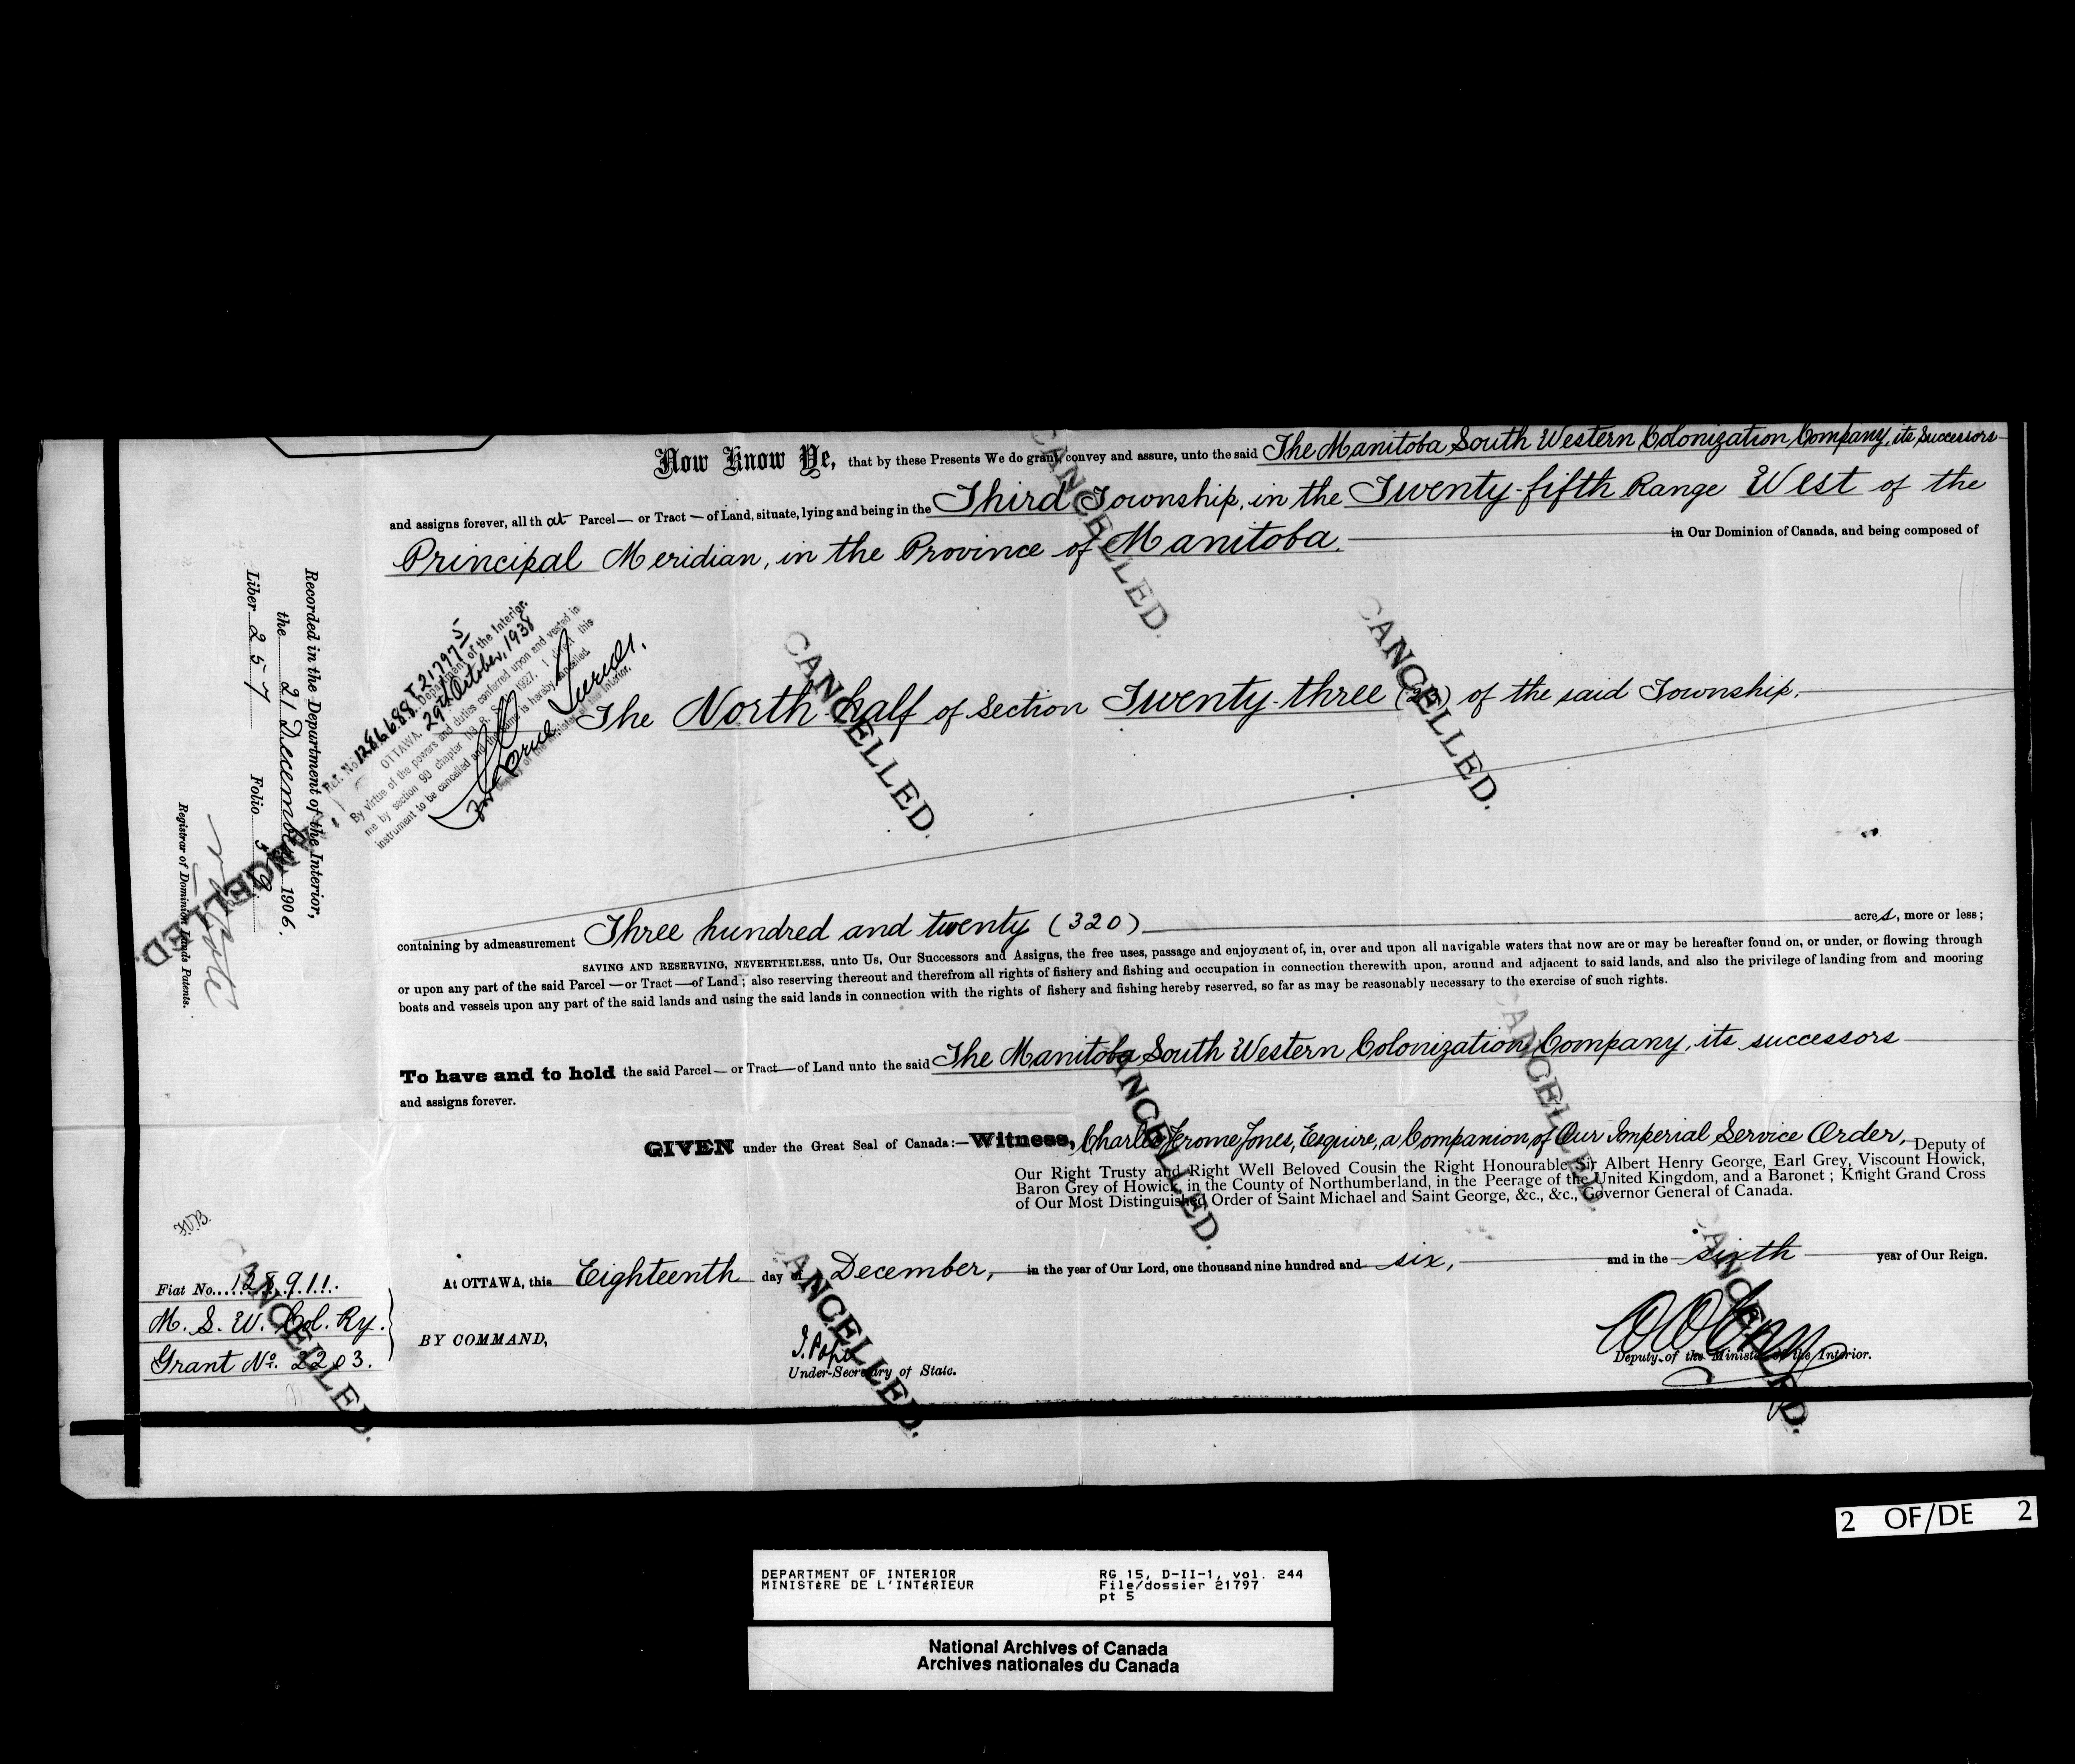 Now Know Ye, that by these Presents We do grant, convey and assure, unto the said The Manitoba South Western Colonization Company, its successors
and assigns forever, all that Parcel — or Tract — of Land, situate, lying and being in the Third Township, in the Twenty-fifth Range West of the
Principal Meridian, in the Province of Manitoba. in Our Dominion of Canada, and being composed of
Ref. No T. 21797-5
Department of the Interior.
OTTAWA, 29th October, 1938
By virtue of the powers and duties conferred upon and vested in
me by section 90 chapter 113 R. S. 1927, I direct this
instrument to be cancelled and the same is hereby cancelled.
for Deputy of the Minister of the Interior.
The North half of section Twenty-three (23) of the said Township.
containing by admeasurement Three hundred and twenty (320) acres, more or less;
SAVING AND RESERVING, NEVERTHELESS, unto Us, Our Successors and Assigns, the free uses, passage and enjoyment of, in, over and upon all navigable waters that now are or may be hereafter found on, or under, or flowing through
or upon any part of the said Parcel — or Tract — of Land; also reserving thereout and therefrom all rights of fishery and fishing and occupation in connection therewith upon, around and adjacent to said lands, and also the privilege of landing from and mooring
boats and vessels upon any part of the said lands and using the said lands in connection with the rights of fishery and fishing hereby reserved, so far as may be reasonably necessary to the exercise of such rights.
To have and to hold the said Parcel — or Tract — of Land unto the said The Manitoba South Western Colonization Company, its successors
and assigns forever.
GIVEN under the Great Seal of Canada:— Witness, Charles Jerome Jones, Esquire, a Companion of Our Imperial Service Order, Deputy of
Our Right Trusty and Right Well Beloved Cousin the Right Honourable Sir Albert Henry George, Earl Grey, Viscount Howick,
Baron Grey of Howick, in the County of Northumberland, in the Peerage of the United Kingdom, and a Baronet; Knight Grand Cross
of Our Most Distinguished Order of Saint Michael and Saint George, &c., &c., Governor General of Canada.
At OTTAWA, this Eighteenth day of December, in the year of Our Lord, one thousand nine hundred and six, and in the sixth year of Our Reign.
BY COMMAND,
J. Pope
Under-Secretary of State.
Deputy of the Minister of the Interior.
Recorded in the Department of the Interior,
the 21 December 1906.
Liber 257 Folio
Registrar of Dominion Lands Patents.
Fiat No. 128911.
M. S. W. Col. Ry.
Grant No. 2203.
CANCELLED.
CANCELLED.
CANCELLED.
CANCELLED.
CANCELLED.
CANCELLED.
CANCELLED.
CANCELLED.
CANCELLED.
2 OF/DE 2
DEPARTMENT OF INTERIOR
MINISTÈRE DE L'INTÉRIEUR
RG 15, D-II-1, vol. 244
File/dossier 21797
pt 5
National Archives of Canada
Archives nationales du Canada